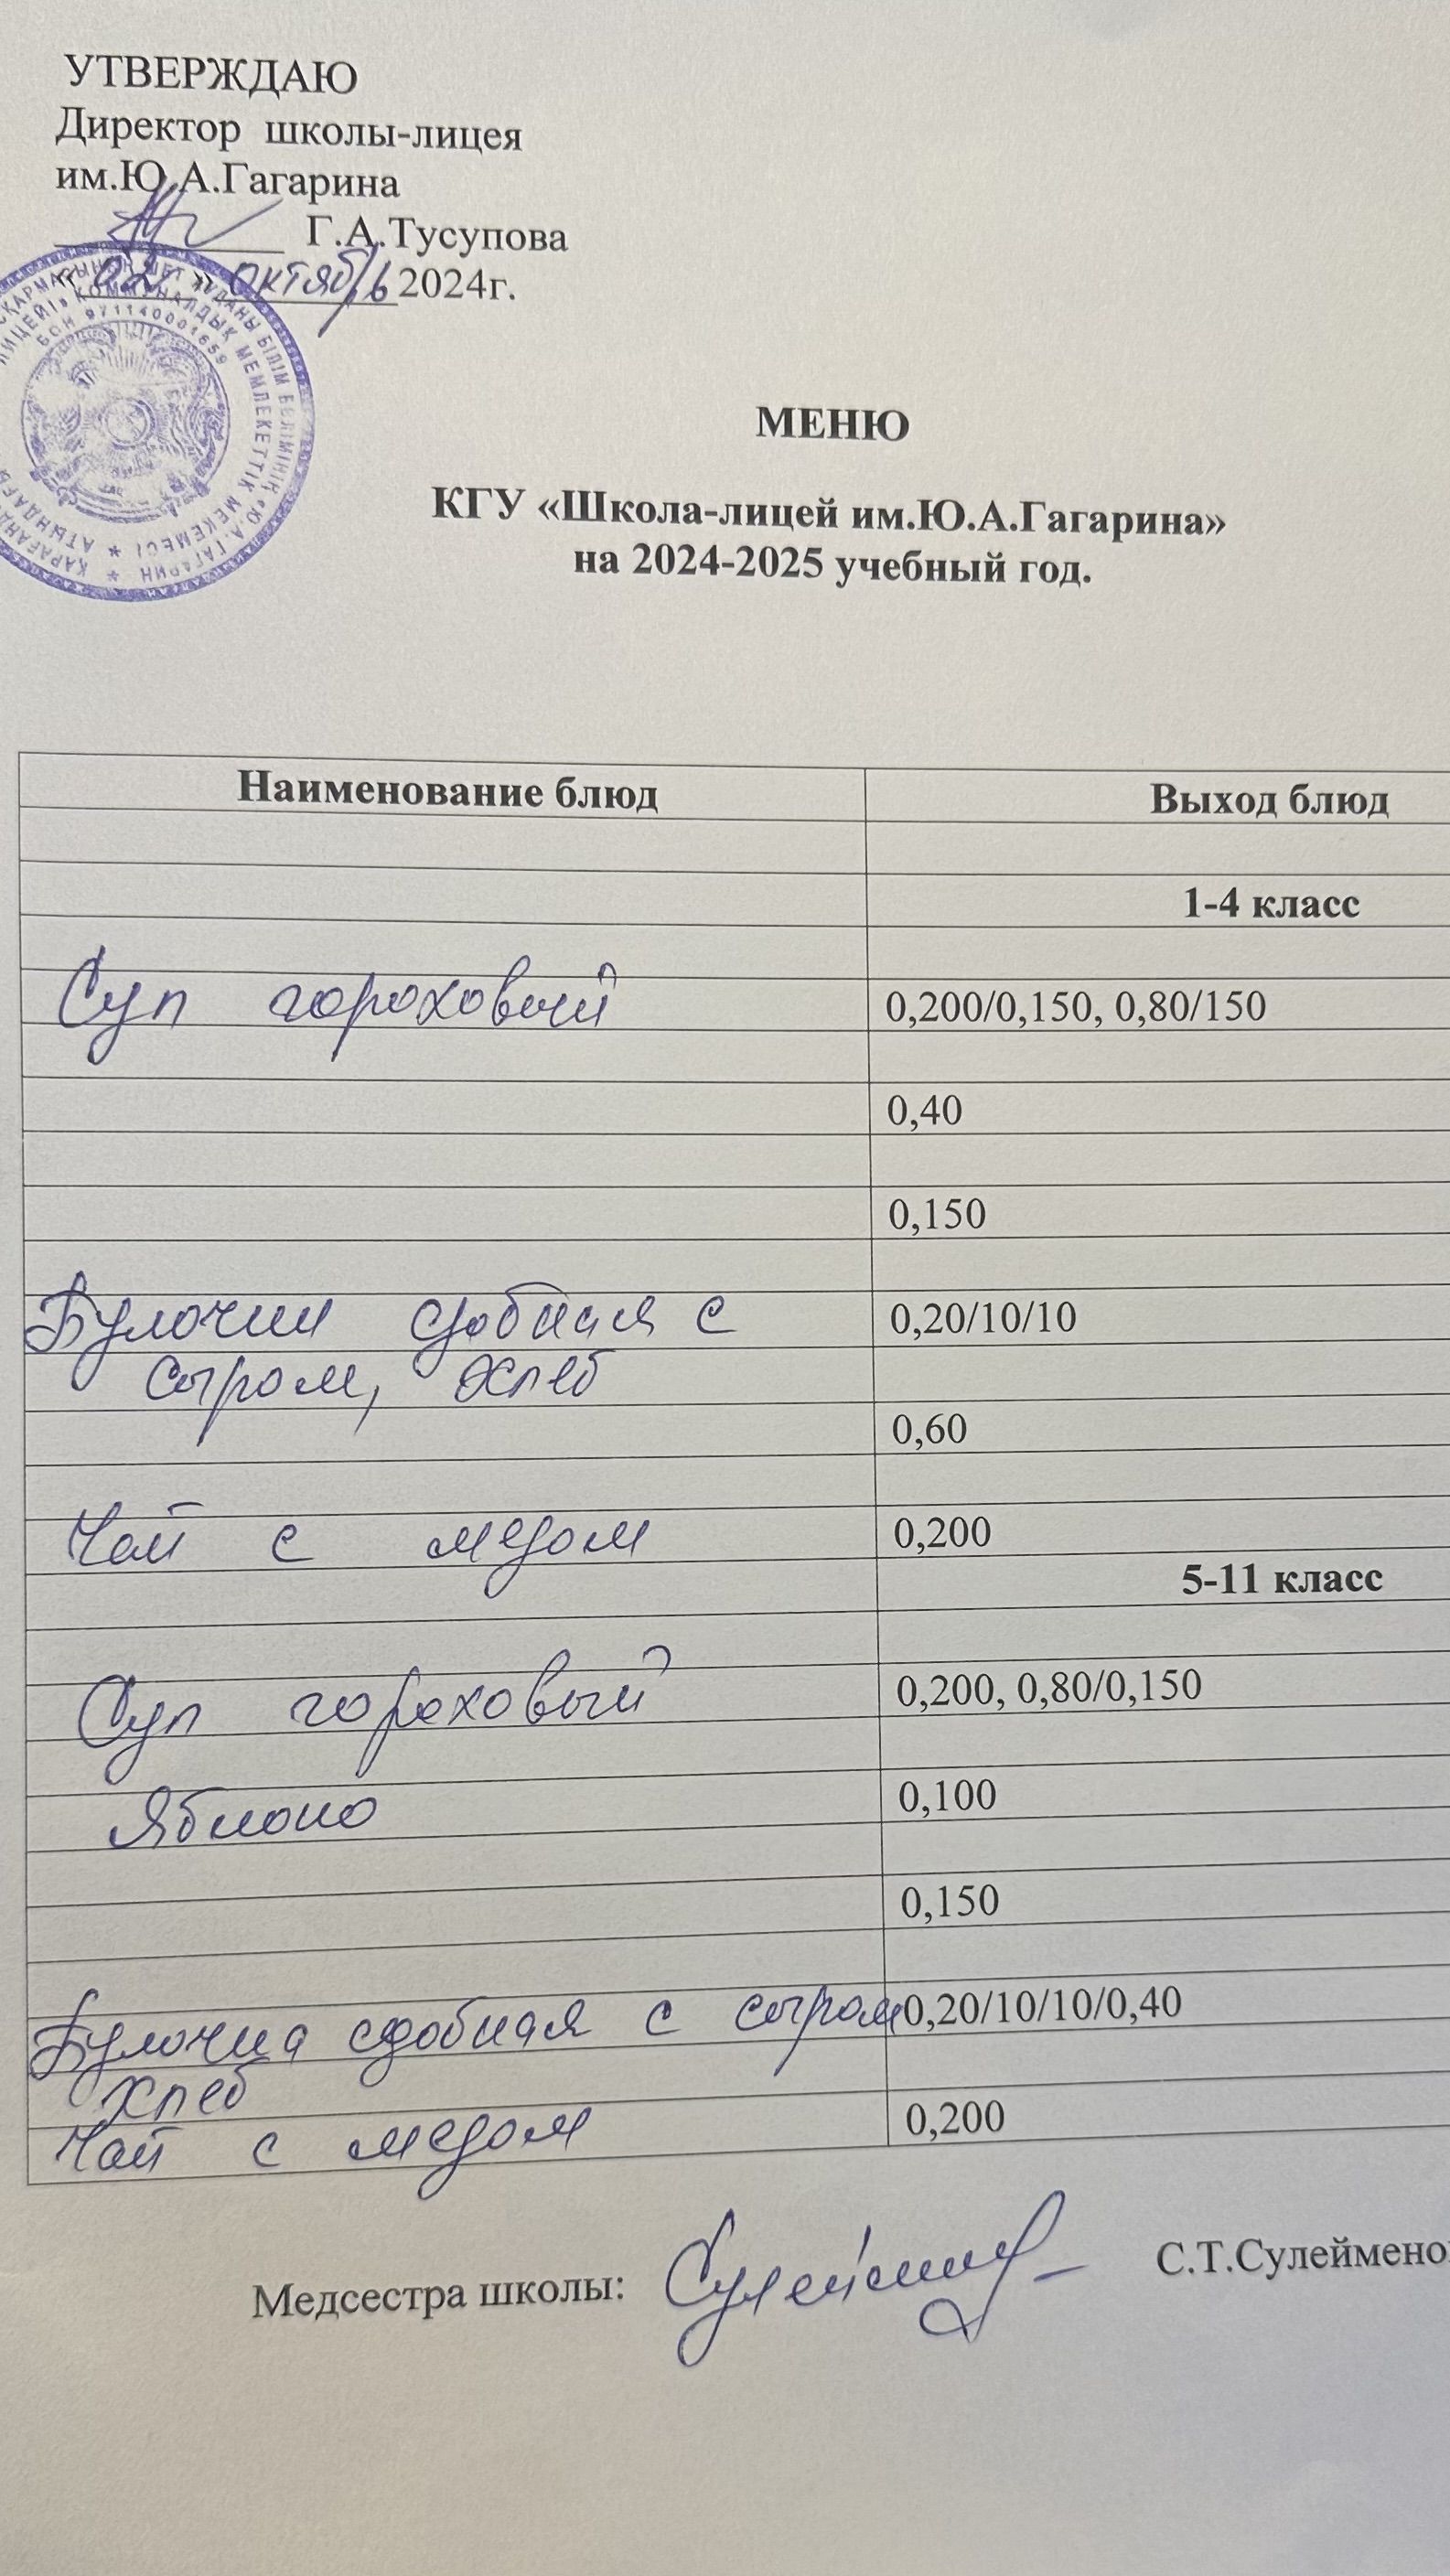 УТВЕРЖДАЮ
Директор школы-лицея
им.Ю.А.Гагарина
Г.А.Тусупова
«02» октябрь 2024г.
БСН 971140001659
МЕНЮ
КГУ «Школа-лицей им.Ю.А.Гагарина»
на 2024-2025 учебный год.
Наименование блюд Выход блюд
1-4 класс
Суп гороховый 0,200/0,150, 0,80/150
0,40
0,150
Булочки сдобная с 0,20/10/10
сыром, хлеб
0,60
Чай с медом 0,200
5-11 класс
Суп гороховый 0,200, 0,80/0,150
Яблоко 0,100
0,150
Булочка сдобная с сыром 0,20/10/10/0,40
хлеб
Чай с медом 0,200
Медсестра школы: С.Т.Сулеймено